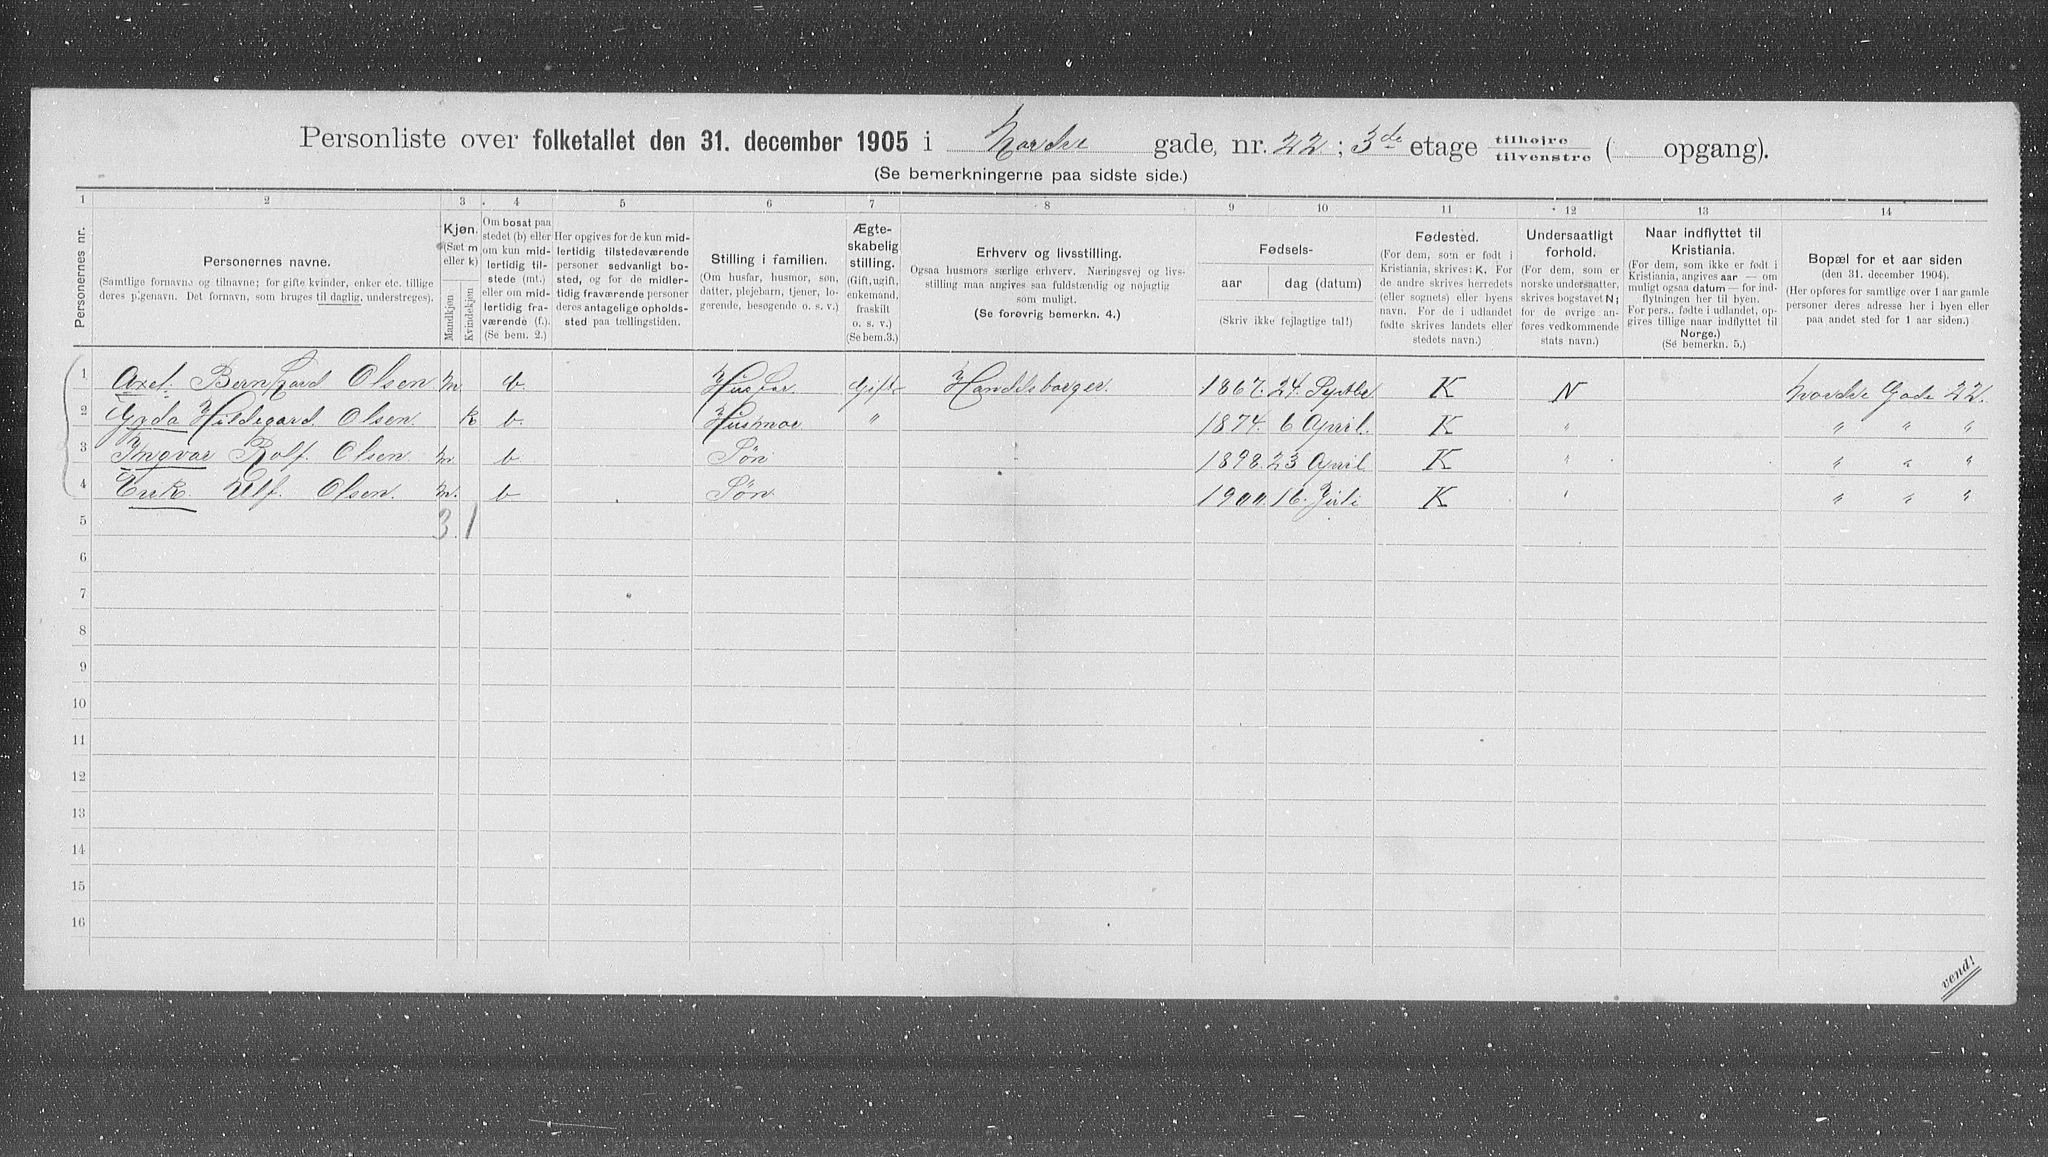 Personliste over folketallet den 31. december 1905 i Nordre gade, nr. 22; 3de etage tilhøjre tilvenstre ( opgang).
(Se bemerkningerne paa sidste side.)
1 2 3 4 5 6 7 8 9 10 11 12 13 14
Personernes nr.
Personernes navne.
(Samtlige fornavne og tilnavne; for gifte kvinder, enker etc. tillige
deres pigenavn. Det fornavn, som bruges til daglig, understreges).
Kjøn.
(Sæt m
eller k)
Mandkjøn
Kvindekjøn
Om bosat paa
stedet (b) eller
om kun mid-
lertidig til-
stede (mt.)
eller om mid-
lertidig fra-
værende (f.).
(Se bem. 2.)
Her opgives for de kun mid-
lertidig tilstedeværende
personer sedvanligt bo-
sted, og for de midler-
tidig fraværende personer
deres antagelige opholds-
sted paa tællingstiden.
Stilling i familien.
(Om husfar, husmor, søn,
datter, plejebarn, tjener, lo-
gerende, besøgende o. s. v.)
Ægte-
skabelig
stilling.
(Gift, ugift,
enkemand,
fraskilt
o. s. v.)
(Se bem. 3.)
Erhverv og livsstilling.
Ogsaa husmors særlige erhverv. Næringsvej og livs-
stilling maa angives saa fuldstændig og nøjagtig
som muligt.
(Se forøvrig bemerkn. 4.)
Fødsels-
aar dag (datum)
(Skriv ikke fejlagtige tal!)
Fødested.
(For dem, som er født i
Kristiania, skrives: K. For
de andre skrives herredets
(eller sognets) eller byens
navn. For de i udlandet
fødte skrives landets eller
stedets navn.)
Undersaatligt
forhold.
(For dem, som er
norske undersaatter,
skrives bogstavet N;
for de øvrige an-
føres vedkommende
stats navn.)
Naar indflyttet til
Kristiania.
(For dem, som ikke er født i
Kristiania, angives aar — om
muligt ogsaa datum — for ind-
flytningen her til byen.
For pers., fødte i udlandet, op-
gives tillige naar indflyttet til
Norge.)
(Se bemerkn. 5.)
Bopæl for et aar siden
(den 31. december 1904).
(Her opføres for samtlige over 1 aar gamle
personer deres adresse her i byen eller
paa andet sted for 1 aar siden.)
1 Axel Bernhard Olsen m b. Husfar Gift Handelsborger. 1867. 24. Septbr K N Nordre Gade 22.
2 Hildegard Olsen. k b. Husmor " 1874. 6 April. K " " " "
3 Ingvar Rolf Olsen. m. b. Søn 1898. 23 April K " " " "
4 Erik Ulf. Olsen. m. b Søn 1900. 16. Juli K " " " "
5 3. 1
6
7
8
9
10
11
12
13
14
15
16
vend!